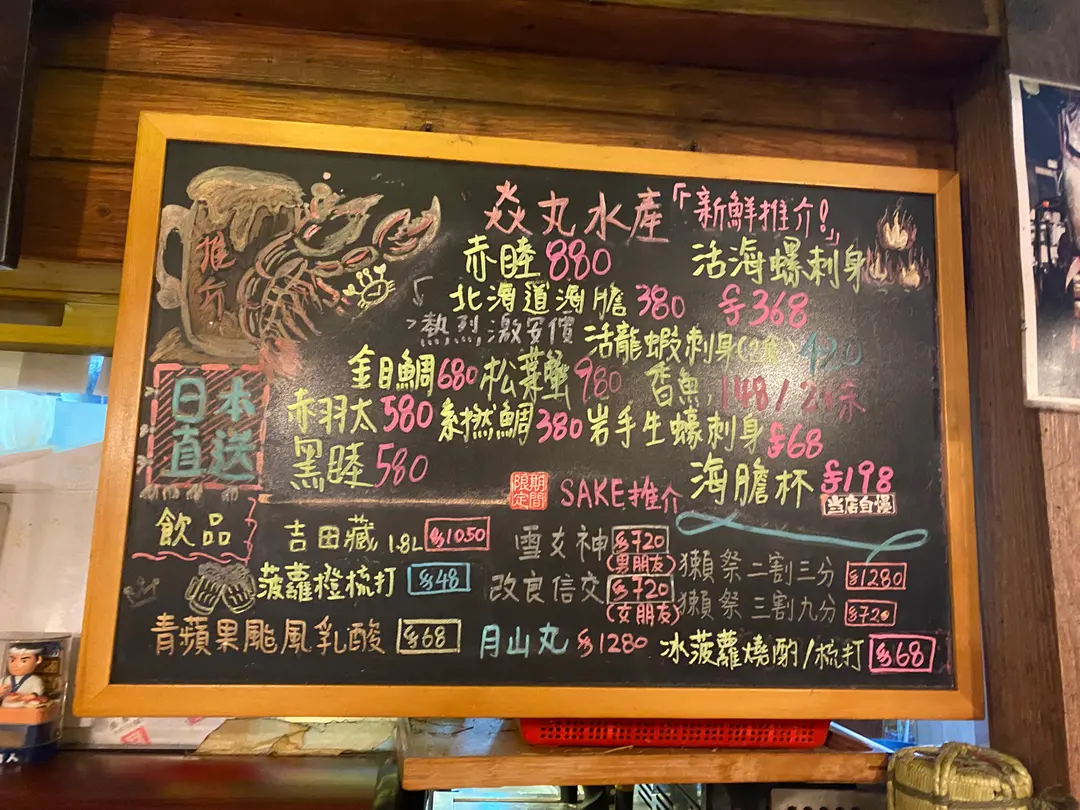 推介
焱丸水產「新鮮推介!」
赤睦880
活海螺刺身
$368
北海道海膽380
熱烈激安價
活龍蝦刺身 420
金目鯛680 松葉蟹980
香魚 148/2條
赤羽太580 糸撚鯛380 岩手生蠔刺身 $68
黑睦580
海膽杯 $198
当店自慢
日本
直送
期間
限定
SAKE推介
飲品
吉田藏 1.8L $1050
雪女神 $720
(男朋友)
獺祭二割三分 $1280
菠蘿橙梳打 $48
改良信交 $720
(女朋友)
獺祭 三割九分 $720
青蘋果颱風乳酸 $68
月山丸 $1280
冰菠蘿燒酌/梳打 $68